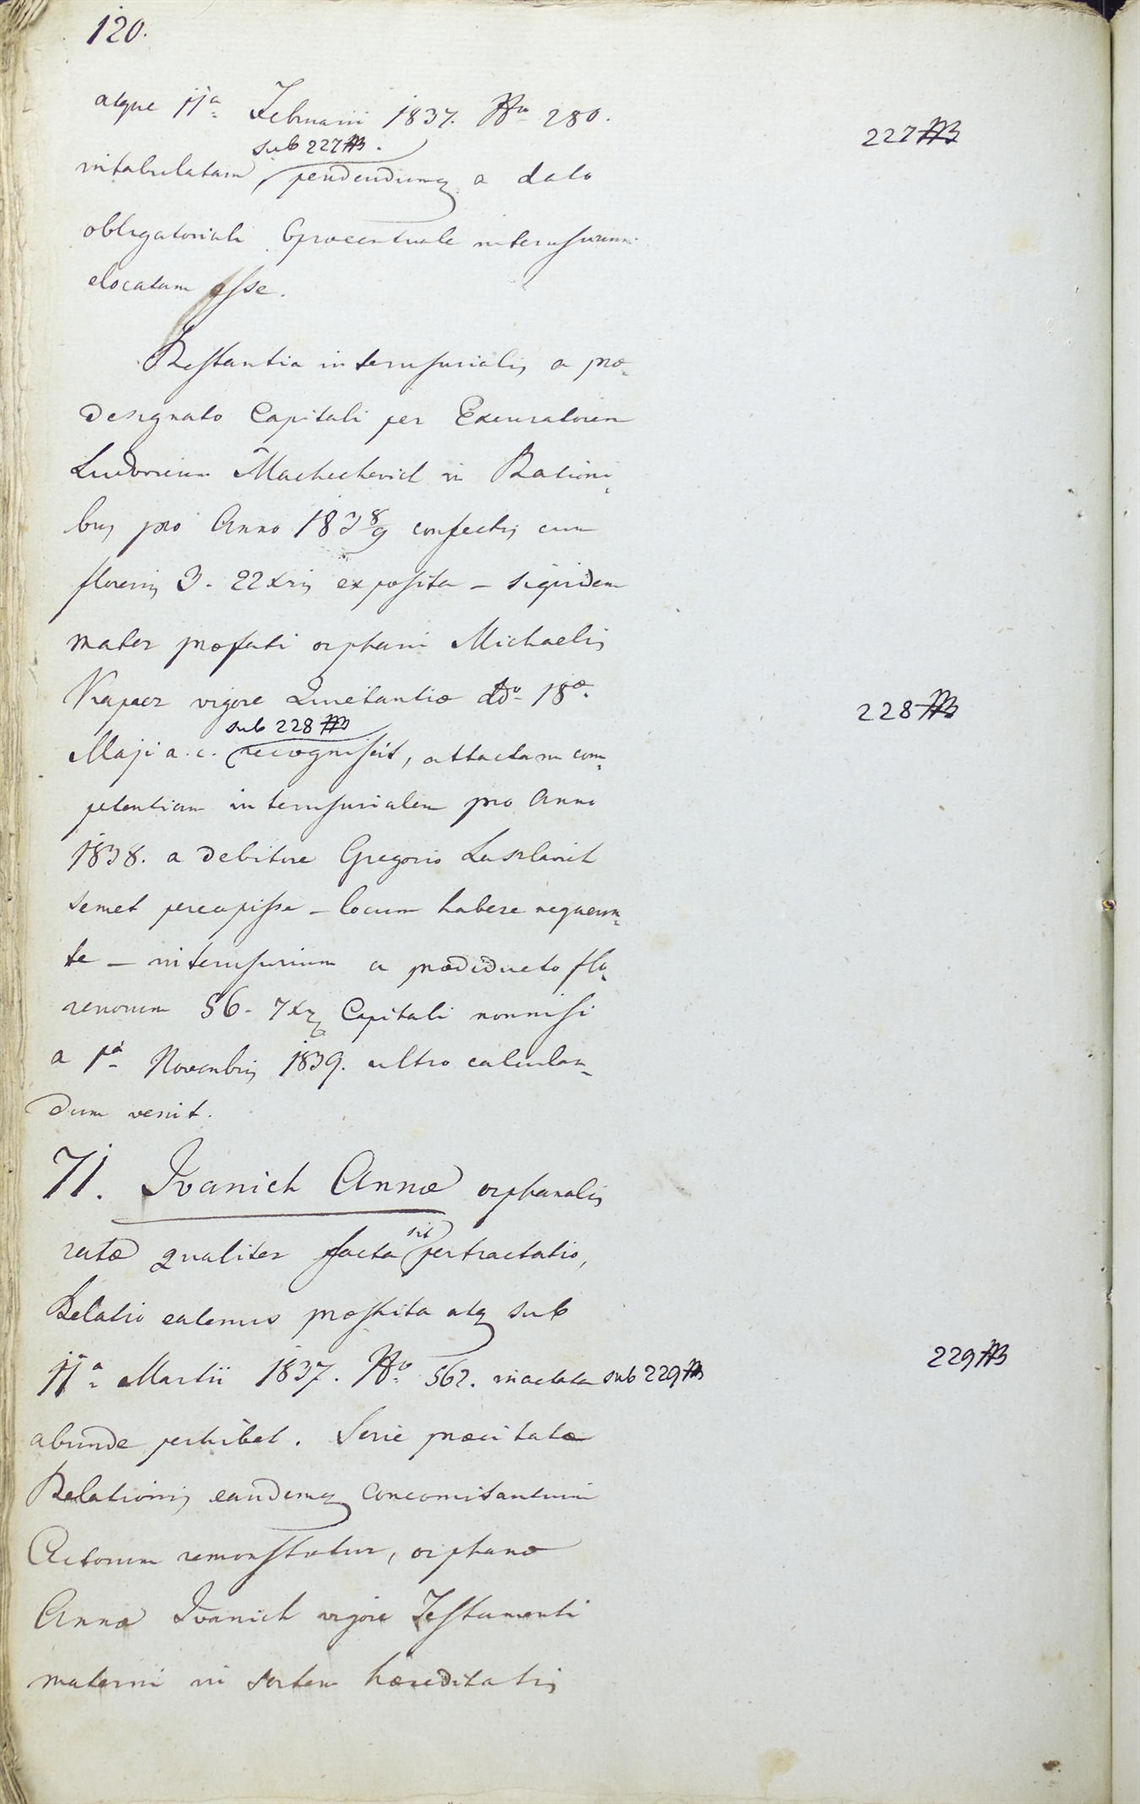 120.
atque 11a Februarii 1837. No 280.
227
sub 227
intabulatam, pendendumq a dato
obligatoriali 6procentuale interusurium
elocatam esse.
Restantia interusurialis a præ-
designato Capitali per Excuratorem
Ludovicum Machechevich in Rationi-
bus pro Anno 1838/9 confectis cum
florenis 3. 22 xris exposita – siquidem
mater præfati orphani Michaelis
Kapacz vigore Quietantiæ ddo 18æ
228
sub 228
Maji a. c. recognisset, attactam com-
petentiam interusurialem pro Anno
1838. a debitore Gregorio Laszlavich
semet percepisse – locum habere nequeun-
te – interusurium a prædiducto flo-
renorum 56. 7 xr Capitali nonnisi
a 1a Novembris 1839. ultro calculan-
dum venit.
71. Ivanich Annæ orphanalis
sit
ratæ qualiter facta pertractatio,
Relatio eatenus præstita atq sub
11a Martii 1837. No 562. inactata sub 229
229
abunde perhibet. Serie præcitatæ
Relationis eandemq concomitantium
Actorum remonstratur, orphanæ
Annæ Ivanich vigore Testamenti
materni in sortem hæreditatis